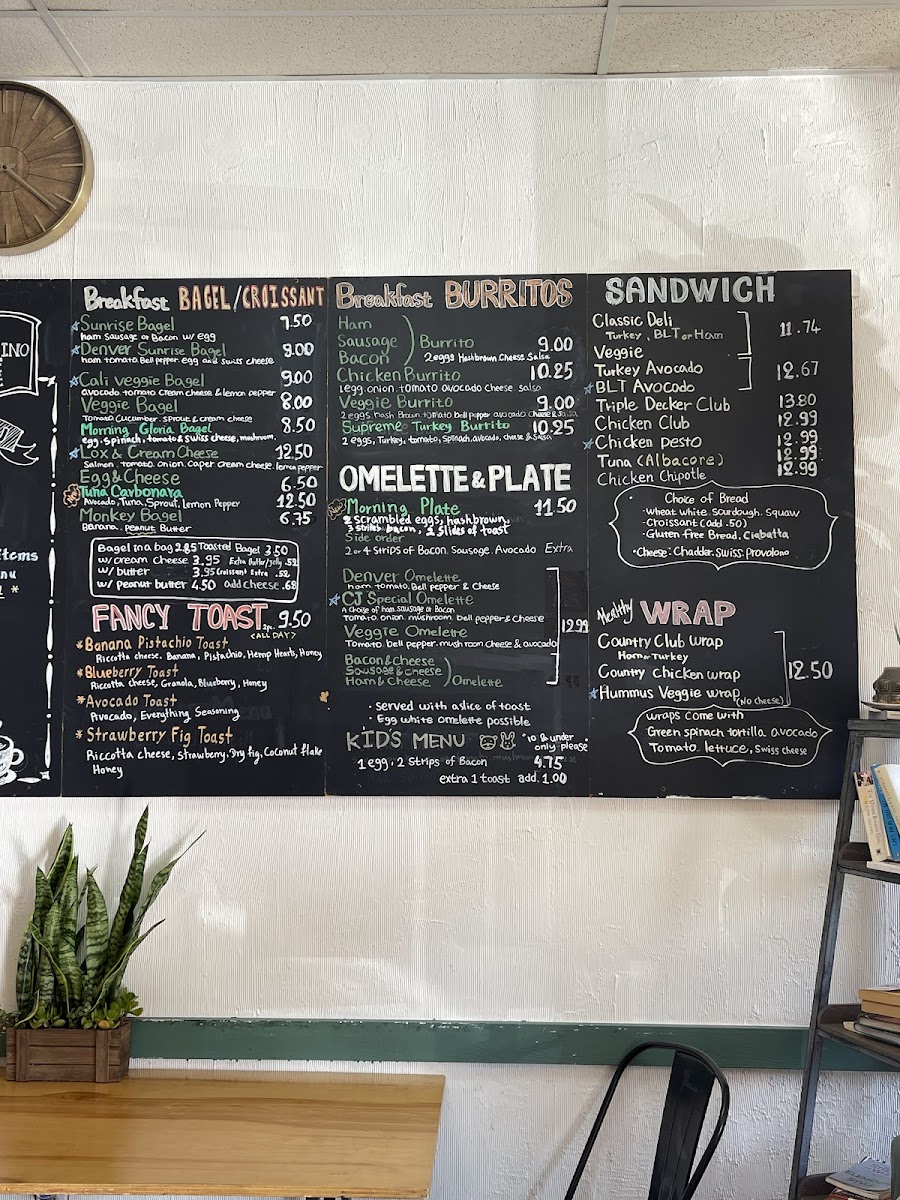 INO
items
nu
*
Breakfast BAGEL/CROISSANT
Sunrise Bagel 7.50
ham Sausage or Bacon w/ egg
Denver Sunrise Bagel 9.00
ham tomato. Bell pepper. egg and swiss cheese
Cali veggie Bagel 9.00
avocado tomato cream cheese & lemon pepper
Veggie Bagel 8.00
Tomato Cucumber sprout & cream cheese
Morning Gloria Bagel 8.50
egg, spinach, tomato & swiss cheese, mushroom,
Lox & Cream Cheese 12.50
Salmon, tomato. onion. caper cream cheese. lemon pepper
Egg & Cheese 6.50
Tuna Carbonara 12.50
Avocado, Tuna, Sprout, Lemon Pepper
Monkey Bagel 6.75
Banana, Peanut Butter
Bagel in a bag 2.85 Toasted Bagel 3.50
w/ cream cheese 3.95 Extra Butter/jelly .52
w/ butter 3.95 Croissant Extra .52
w/ peanut butter 4.50 add cheese .68
FANCY TOAST 2pc. 9.50
<ALL DAY>
*Banana Pistachio Toast
Riccotta cheese, Banana, Pistachio, Hemp Hearts, Honey
*Blueberry Toast
Riccotta cheese, Granola, Blueberry, Honey
*Avocado Toast
Avocado, Everything Seasoning
*Strawberry Fig Toast
Riccotta cheese, strawberry, Dry fig, Coconut flake
Honey
Breakfast BURRITOS
Ham
Sausage ) Burrito 9.00
Bacon 2 eggs Hashbrown. Cheese. Salsa
Chicken Burrito 10.25
1 egg. onion. tomato avocado cheese. salsa
Veggie Burrito 9.00
2 eggs, Hash Brown tomato bell pepper avocado cheese & salsa
Supreme Turkey Burrito 10.25
2 eggs, Turkey, tomato, Spinach, avocado, cheese & Salsa
OMELETTE & PLATE
New Morning Plate 11.50
2 scrambled eggs, hashbrown,
3 strips bacon, 2 slides of toast
Side order
2 or 4 strips of Bacon. Sausage. Avocado Extra
Denver Omelette
ham. tomato. Bell pepper & Cheese
CJ Special Omelette
A choice of ham sausage or Bacon
Tomato. onion. mushroom. bell pepper & Cheese
12.99
Veggie Omelette
Tomato. bell pepper. mushroom cheese & avocado
Bacon & Cheese
Sausage & Cheese ) Omelette
Ham & Cheese
· Served with a slice of toast
· Egg white omelette possible
KID'S MENU "10 & under
only please"
1 egg, 2 Strips of Bacon 4.75
extra 1 toast add. 1.00
SANDWICH
Classic Deli 11.74
Turkey, BLT or Ham
Veggie
Turkey Avocado 12.67
BLT Avocado
Triple Decker Club 13.80
Chicken Club 12.99
Chicken pesto 12.99
Tuna (Albacore) 12.99
Chicken Chipotle 12.99
· Choice of Bread
·wheat. white. Sourdough. Squaw
·Croissant (add .50)
·Gluten Free Bread, Ciabatta
·Cheese: Chadder. Swiss. Provolone
Healthy WRAP
Country Club wrap
Ham or Turkey
Country Chicken wrap 12.50
Hummus Veggie wrap
(No cheese)
wraps come with
Green spinach tortilla avocado
Tomato. lettuce, Swiss cheese